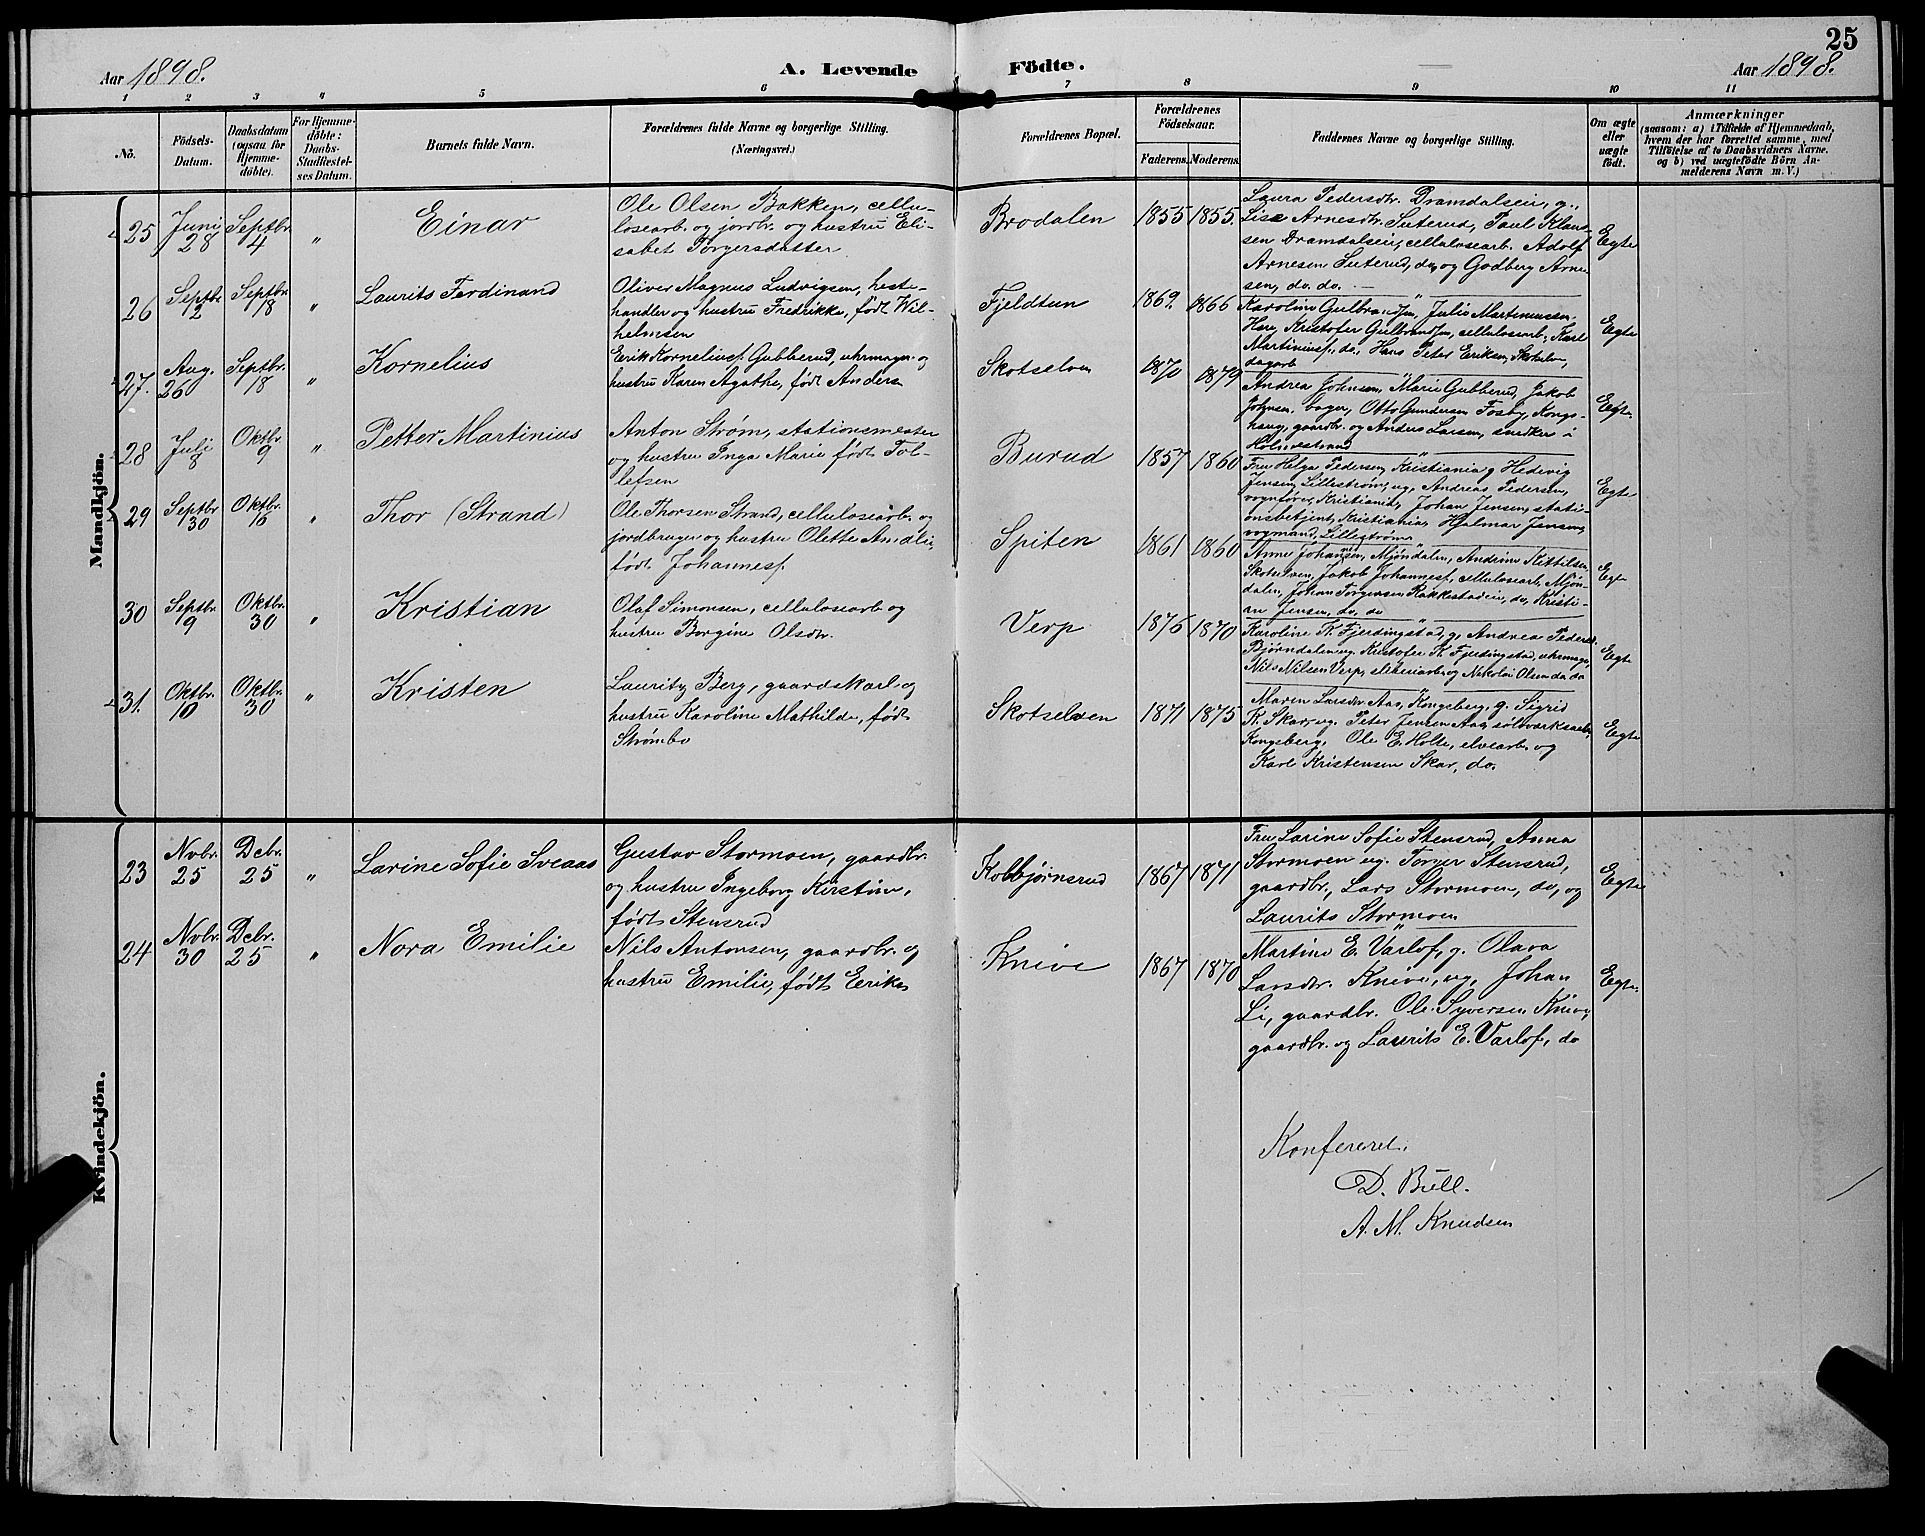 25
Aar 1898.
A. Levende Födte.
Aar 1898.
1 2 3 4 5 6 7 8 9 10 11
No.
Födsels-
Datum.
Daabsdatum
(ogsaa for
Hjemme-
döbte).
For Hjemme-
döbte:
Daabs-
Stadfæstel-
ses Datum.
Barnets fulde Navn.
Forældrenes fulde Navne og borgerlige Stilling.
(Næringsvei.)
Forældrenes Bopæl.
Forældrenes
Födselsaar.
Faderens. Moderens.
Faddernes Navne og borgerlige Stilling.
Om ægte
eller
uægte
födt.
Anmærkninger
(saasom: a) i Tilfælde af Hjemmedaab,
hvem der har forrettet samme, med
Tilföielse af to Daabsvidners Navne.
og b) ved uægtefödte Börn An-
melderens Navn m. V.)
Mandkjön.
25
Juni
28
Septbr.
4
"
Einar
Ole Olsen Bakken, cellu-
losearb. og jordbr. og hustru Eli-
sabet Torgersdatter
Brodalen
1855
1855.
Laura Pedersdtr. Dramdalseie, g.,
Lise Arnesdtr. Suterud, Paul Klau-
sen Dramdalseie, cellulosearb. Adolf
Arnesen Suterud, do, og Godberg Arne-
sen, do. do.
Egte
26
Septbr.
2
Septbr.
18
"
Laurits Ferdinand
Oliver Magnus Ludvigsen, heste-
handler og hustru Fredrikke, født Wil-
helmsen
Fjeldtun
1869
1866
Karoline Gulbrands., Julie Martinussen
Kristofer Gulbrands., cellulosearb., Karl
Martinius., do., Hans Peter Eriksen, Skotselv,
dagarb
Egte
27.
Aug.
26
Septbr.
18
"
Kornelius
Erik Korneliuss. Gubberud, uhrmager og
hustru Karen Agathe, født Anders
Skotselven
1870
1879
Andrea Johnsen, Marie Gubberud, Jakob
Johnsen, bager, Otto Gundersen Fosby, Kongs-
haug, gaardbr. og Anders Larsen, snedker i
Holmestrand
Egte
28
Juli
8
Oktbr.
9
"
Petter Martinius
Anton Strøm, stationsmester
og hustru Inga Marie født Tol-
lefsen
Burud
1857
1860
Fru Helga Pedersen, Kristiania g Hedevig
Jensen, Lillestrøm, ug., Andreas Pedersen,
vognfører, Kristiania, Johan Jensen, stati-
onsbetjent, Kristiania, Hjalmar Jensen,
vogmand, Lillestrøm
Egte
29
Septbr
30
Oktbr.
16
"
Thor (Strand)
Ole Thorsen Strand, cellulosearb. og
jordbruger og hustru Olette Amalie,
født Johanness.
Spiten
1861
1860
Anne Johansen, Mjøndalen, Andrine Kittilsen
Skotselven, Jakob Johanness., cellulosearb. Mjøn-
dalen, Johan Torgersen Rakkestadeie, do, Kristi-
an Jensen, do, do
Egte
30
Septbr
9
Oktbr.
30
"
Kristian
Olaf Simonsen, cellulosearb og
hustru Borgine Olsdr.
Verp
1876
1870
Karoline K. Fjerdingstad, g, Andrea Peders.
Bjørndalen ug. Kristofer K. Fjerdingstad, uhrmager,
Nils Nilsen Verp, sliberiarb. og Nikolai Olsen do do
Egte
31.
Oktbr.
10
Oktbr.
30
"
Kristen
Lauritz Berg, gaardskarl og
hustru Karoline Mathilde, født
Strømbo
Skotselven
1871
1875
Maren Larsdtr Aas, Kongsberg, g. Sigrid
K. Skar, ug. Peter Jensen Aas, sølvverksarb,
Kongsberg, Ole E. Holte, elvearb. og
Karl Kristensen Skar, do.
Egte
Kvindekjön.
23
Novbr.
25
Debr.
25
"
Larine Sofie Sveaas
Gustav Stormoen, gaardbr.
og hustru Ingeborg Kirstine,
født Stensrud
Kolbjørnsrud
1867
1871
Fru Larine Sofie Stensrud, Anna
Stormoen ug. Torver Stensrud,
gaardbr., Lars Stormoen, do, og
Laurits Stormoen
Egte
24
Novbr.
30
Debr.
25
"
Nora Emilie
Nils Antonsen, gaardbr. og
hustru Emilie, født Eriks
Knive
1867
1870
Martine E. Varlof, g. Olava
Larsdr. Knive, ug, Johan
Li, gaardbr. Ole Syversen Knive,
gaardbr. og Laurits E. Varlof, do
Egte
Konfereret.
D. Bull.
A. M. Knudsen